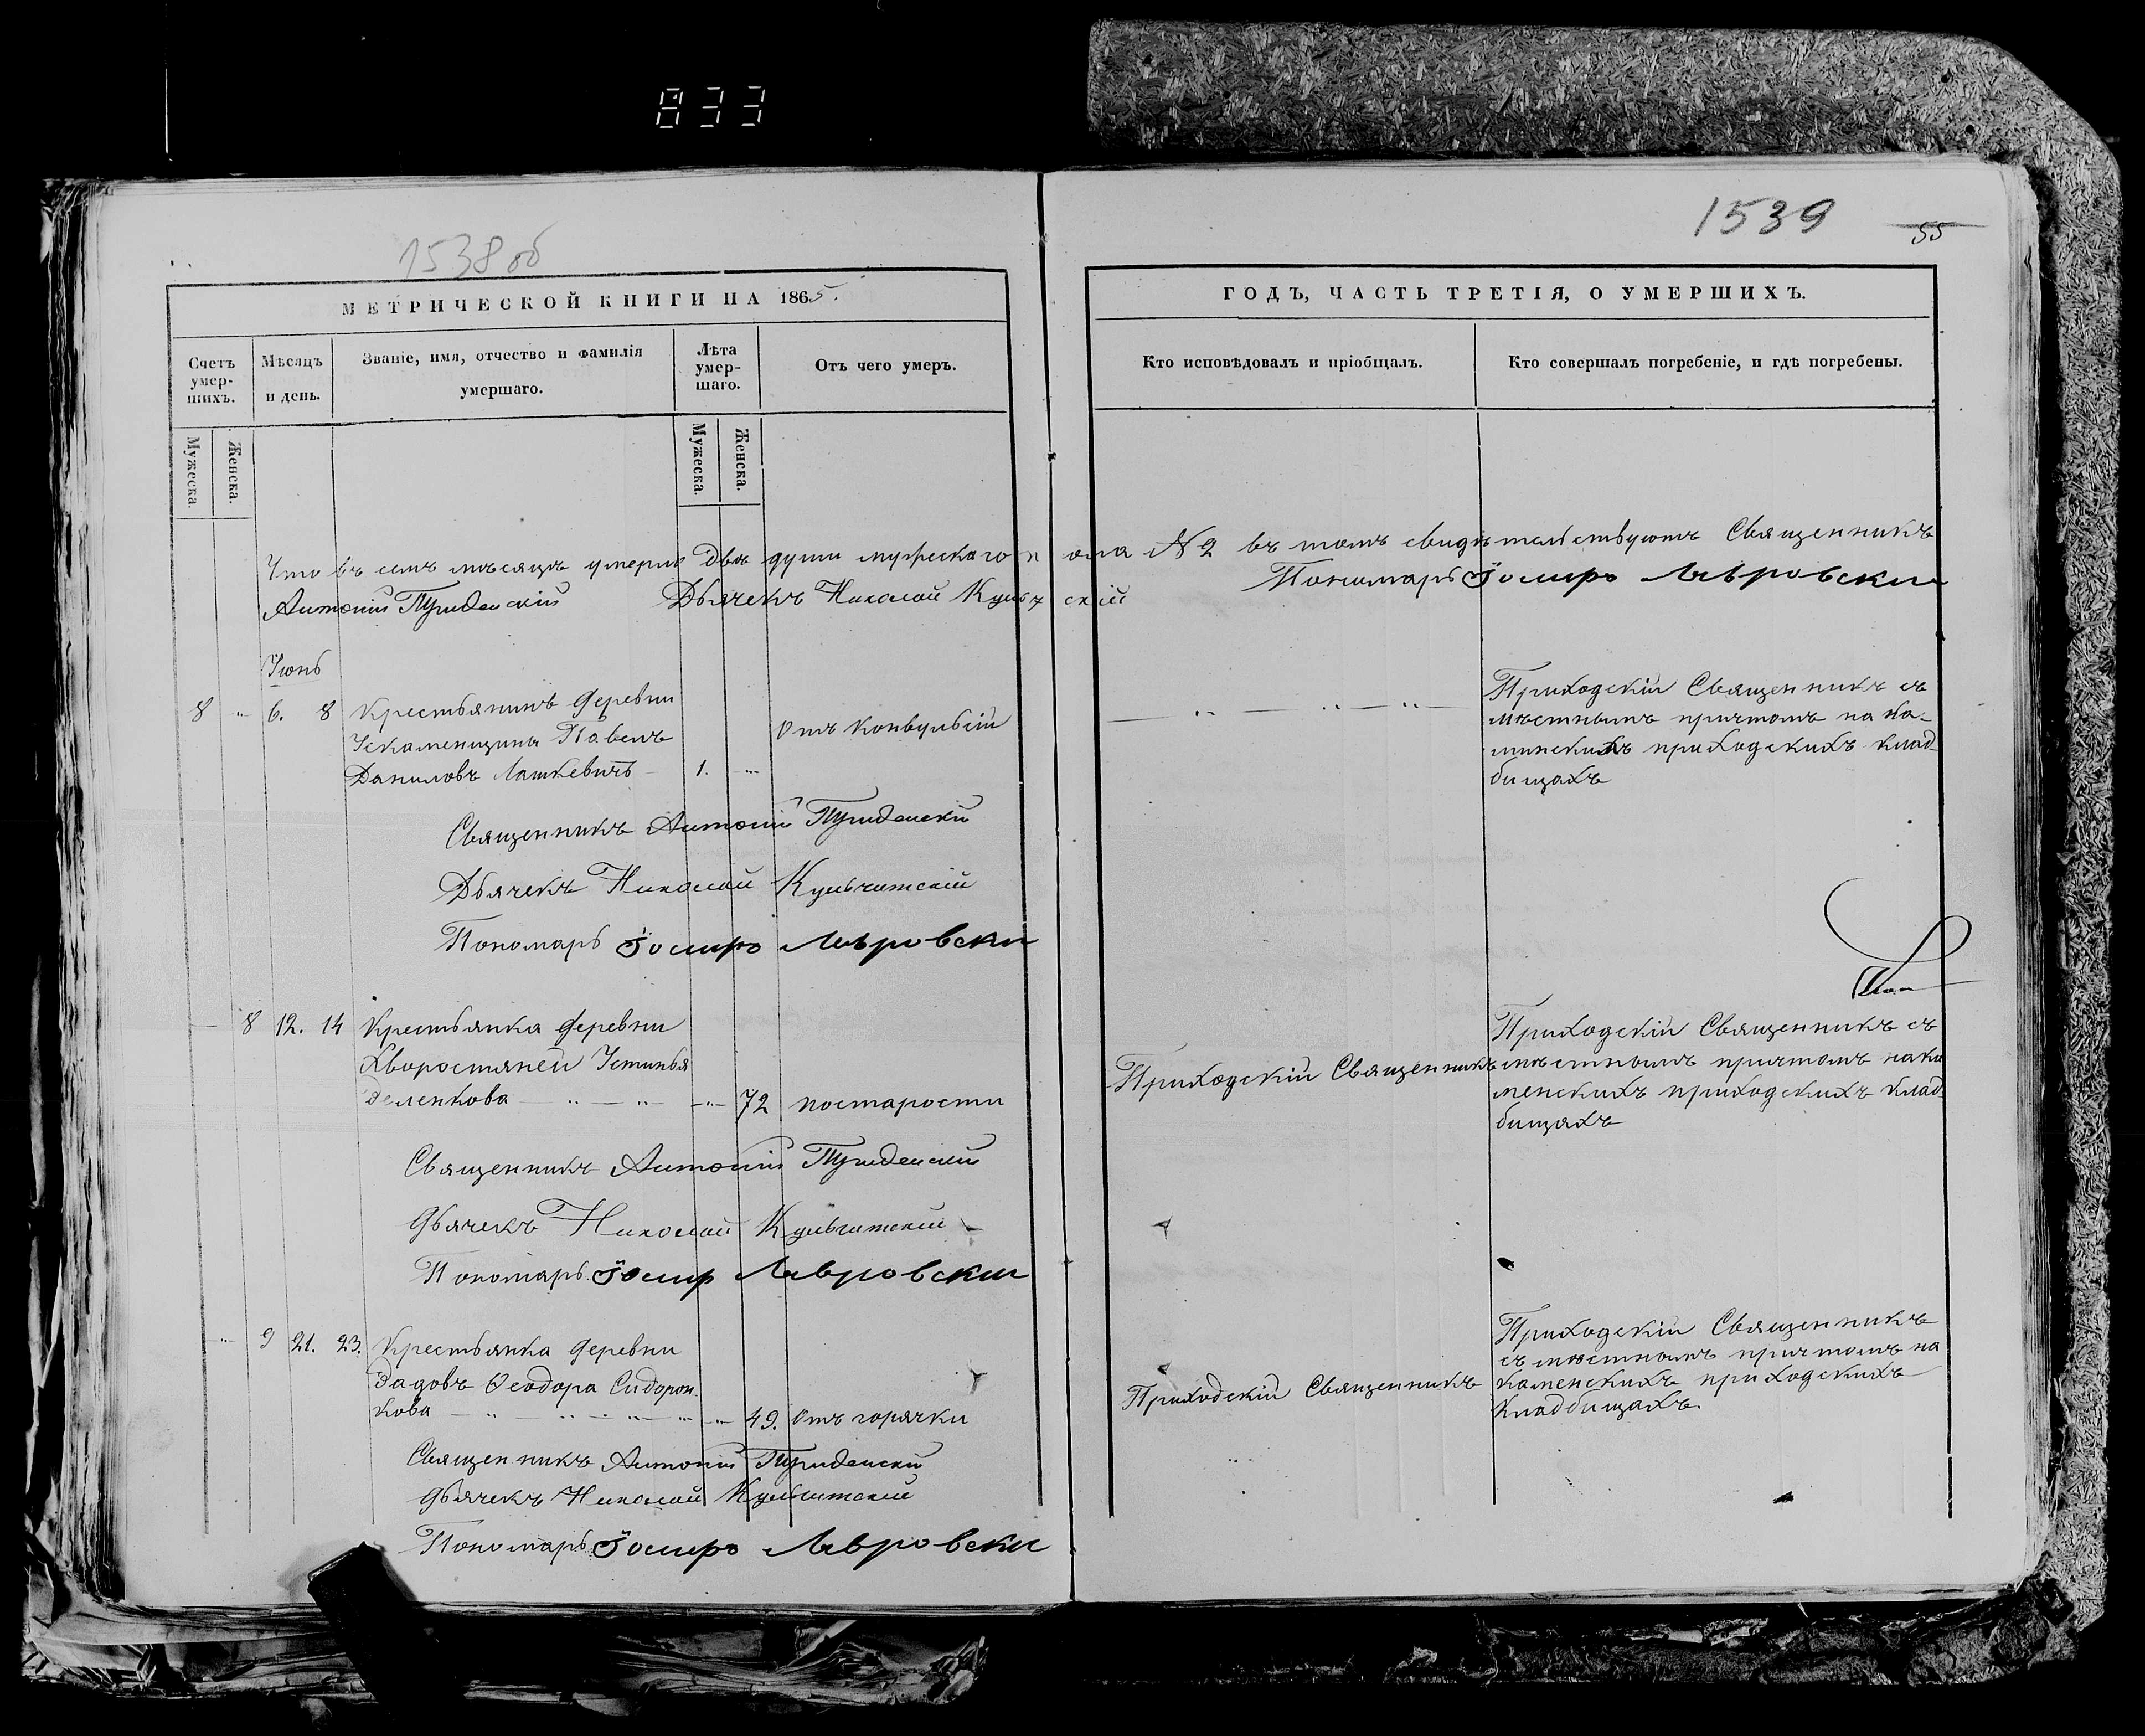 833
1538 об
1539
55
МЕТРИЧЕСКОЙ КНИГИ НА 1865.
ГОДЪ, ЧАСТЬ ТРЕТІЯ, О УМЕРШИХЪ.
Счетъ умер-шихъ.
Мѣсяцъ и день.
Званіе, имя, отчество и фамилія умершаго.
Лѣта умер-шаго.
Отъ чего умеръ.
Кто исповѣдовалъ и пріобщалъ.
Кто совершалъ погребеніе, и гдѣ погребены.
Мужеска.
Женска.
Мужеска.
Женска.
Что въ семъ мѣсяцѣ умерло двѣ души мужескаго пола № 2 въ томъ свидѣтельствуютъ Священникъ
Антоній Дьячекъ Николай Пономарь Іосифъ
Іюнь
8 " 6. 8 Крестьянинъ деревни
Павелъ
Даниловъ Лашкевичъ 1. "
Отъ конвульсій
Приходскій Священникъ съ
мѣстнымъ причтомъ на ка-
минскихъ приходскихъ клад-
бищахъ
Священникъ Антоній
Дьячекъ Николай Кульчитскій
Пономарь Іосифъ
— 8 12. 14 Крестьянка деревни
Хворостяней Устинья
Зеленкова — " — " — " 72 по старости
Приходскій Священникъ
Приходскій Священникъ съ
мѣстнымъ причтомъ на ка
менскихъ приходскихъ клад
бищахъ
Священникъ Антоній
Дьячекъ Николай Кульчитскій
Пономарь Іосифъ
" 9 21. 23. Крестьянка деревни
Задовъ Ѳеодора Сидорон-
кова — " — " — " 49. Отъ горячки
Приходскій Священникъ
Приходскій Священникъ
съ мѣстнымъ причтомъ на
каменскихъ приходскихъ
кладбищахъ.
Священникъ Антоній
Дьячекъ Николай Кульчитскій
Пономарь Іосифъ